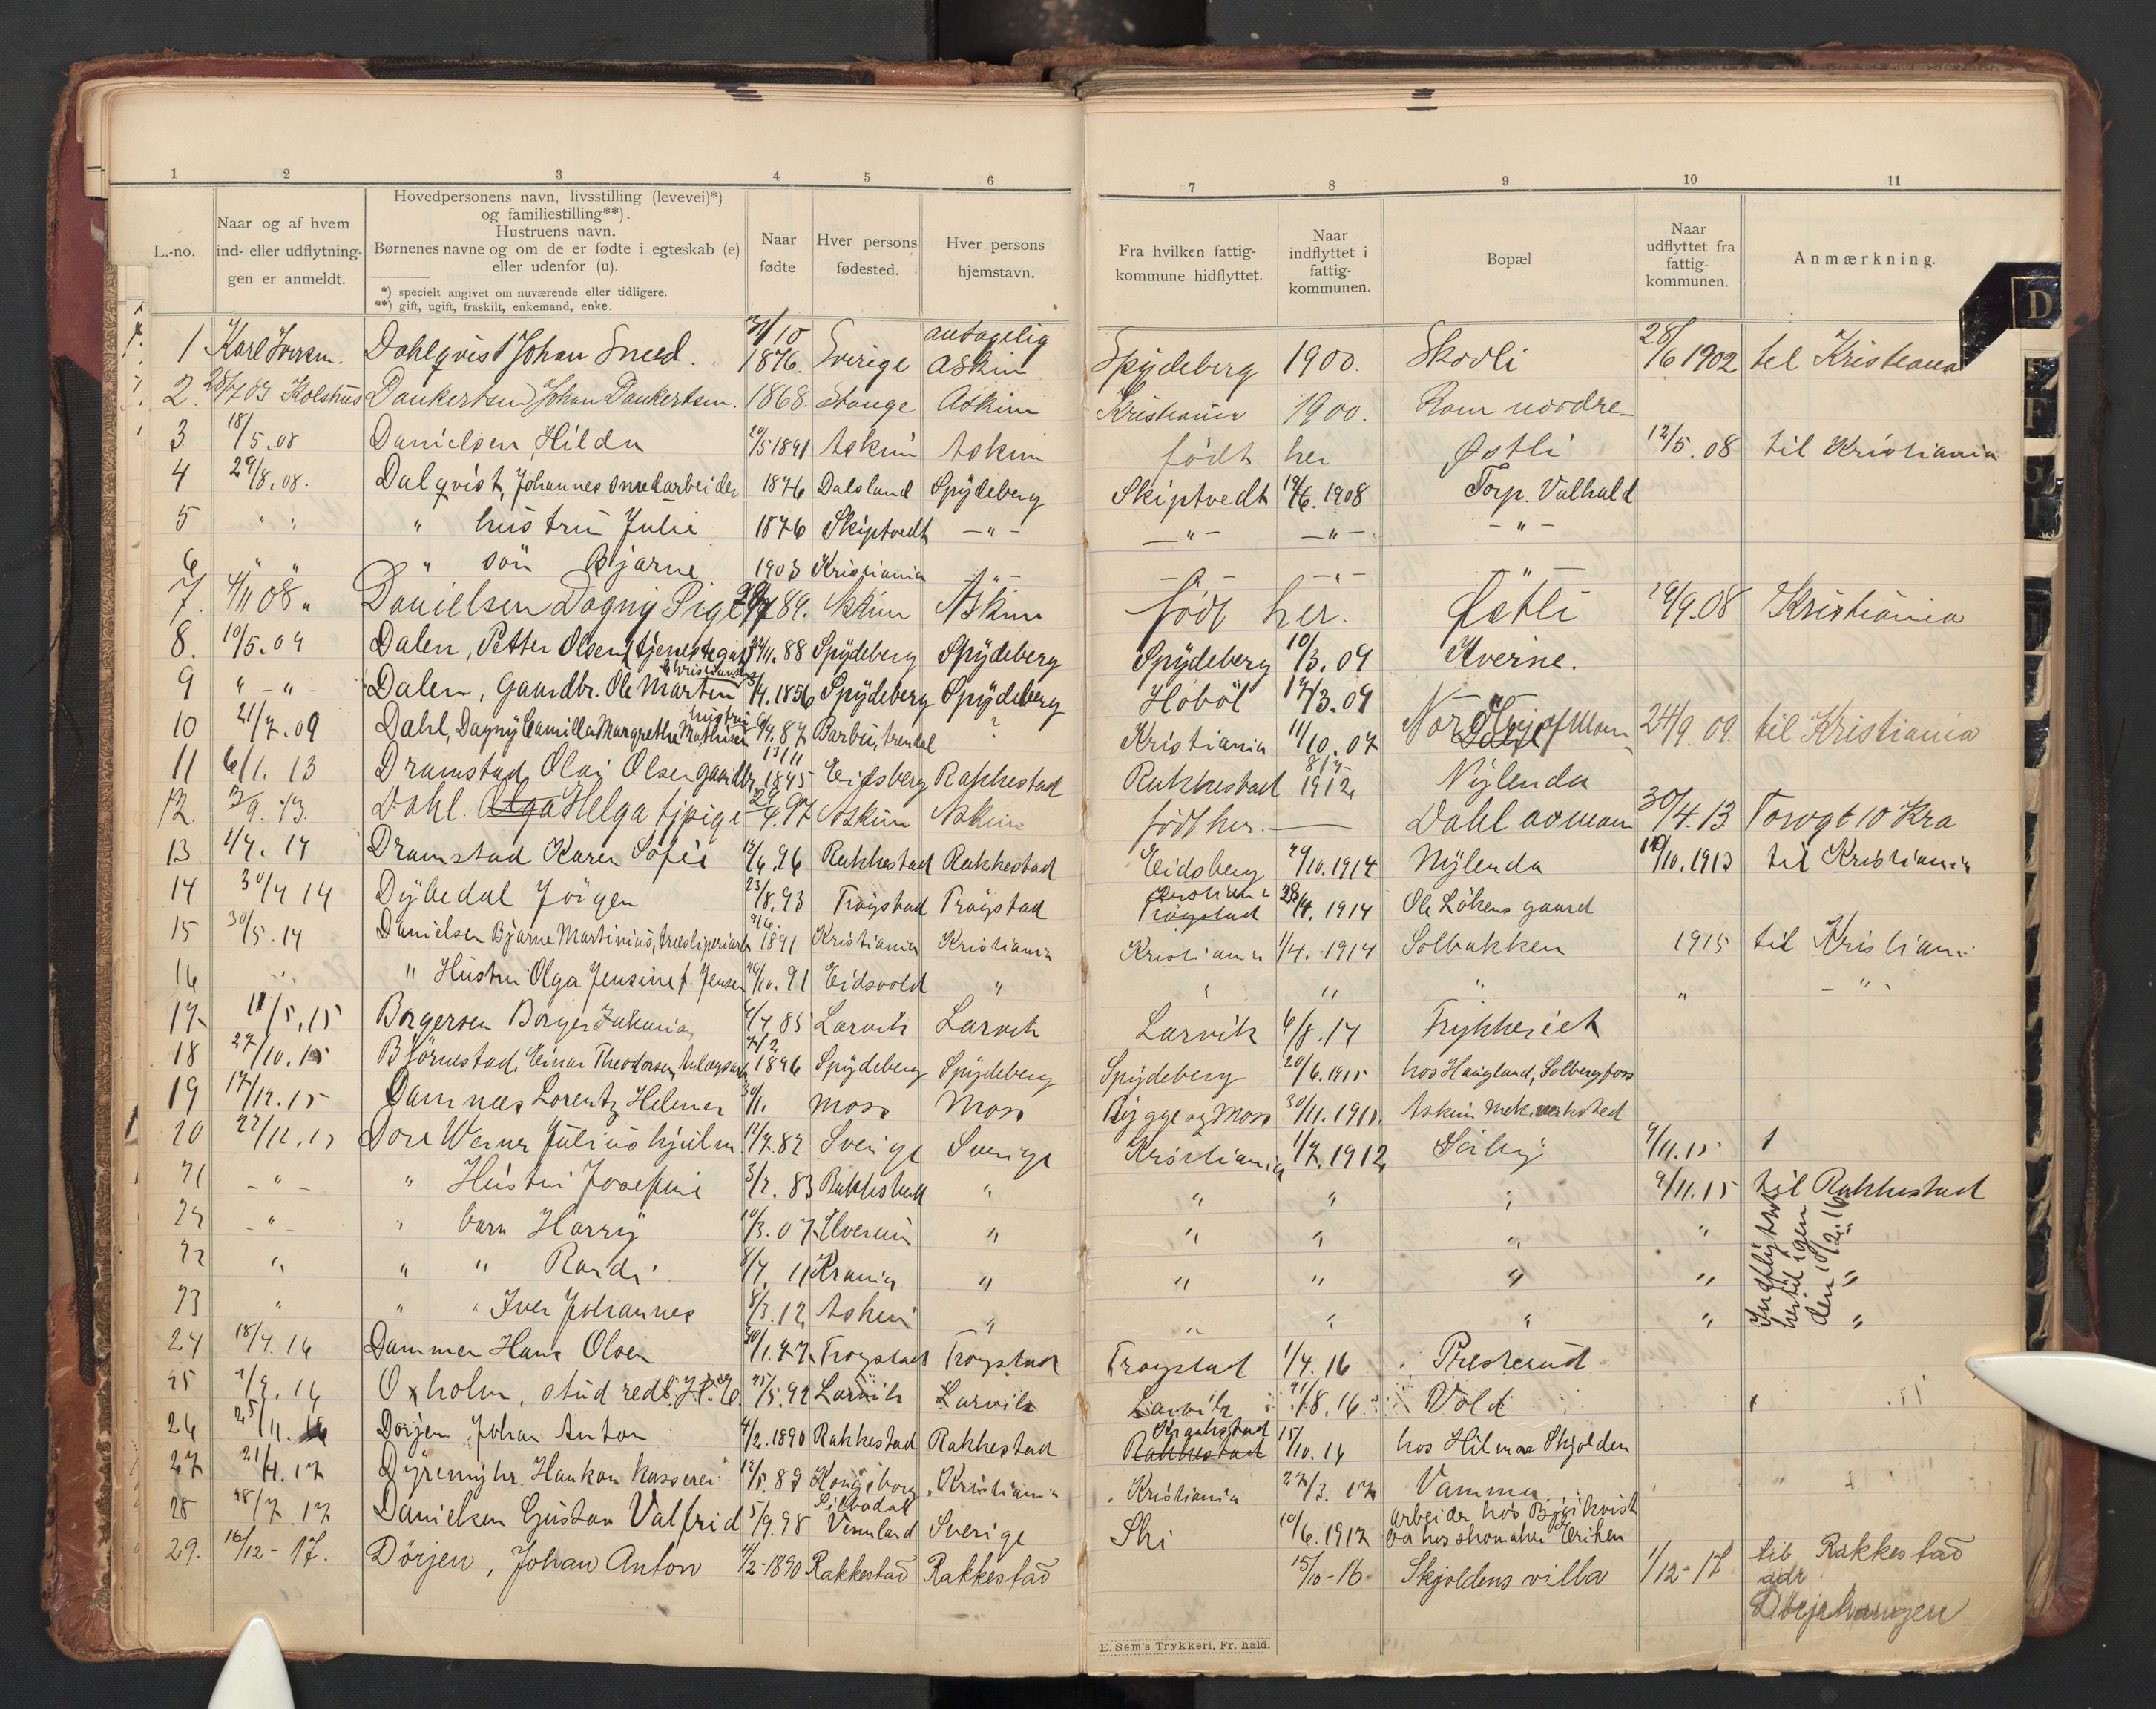 1 2 3 4 5 6 7 8 9 10 11
L.-no.
Naar og af hvem
ind- eller udflytnin-
gen er anmeldt.
Hovedpersonens navn, livsstilling (levevei)*)
og familiestilling**).
Hustruens navn.
Børnenes navne og om de er fødte i egteskab (e)
eller udenfor (u).
*) specielt angivet om nuværende eller tidligere.
**) gift, ugift, fraskilt, enkemand, enke.
Naar
fødte
Hver persons
fødested.
Hver persons
hjemstavn.
Fra hvilken fattig-
kommune hidflyttet.
Naar
indflyttet i
fattig-
kommunen.
Bopæl
Naar
udflyttet fra
fattig-
kommunen.
Anmærkning.
D
F
G
1 Karl Dahlqvist Johan Smed. 31/10 1876. Sverige antagelig Askim Spydeberg 1900. Skodli 28/6 1902 til Kristiania
2. 28/7 03 Kolshus Dankertsen Johan Dankertsen. 1868. Stange Askim Kristiania 1900. Rom nordre
3 18/5.08 Danielsen, Hilda 29/5 1891 Askim Askim født her Østli 12/5.08 til Kristiania
4 29/8.08. Dalqvist, Johannes smedarbeider 1876 Dalsland Spydeberg Skiptvedt 19/6.1908 Torp. Valhald
5 " " " hustru Julie 1876 Skiptvedt -"- -"- -"- -"-
6 " " " søn Bjarne 1903 Kristiania -"- -"- -"- -"-
7. 4/11 08 " Danielsen Dagny Pige 29/7 89. Askim Askim født her. Østli 29/9.08 Kristiania
8. 10/5.09 Dalen, Petter Olsen (tjenestegut) 22/11.88 Spydeberg Spydeberg Spydeberg 10/3.09 Kverne.
9 " -"- Dalen, Gaardbr. Ole Martin Christiansen 3/4.1856 Spydeberg Spydeberg Hobøl 17/3.09
10 21/7.09 Dahl, Dagny Camilla Margrethe Mathisen hustru 9/4.87 Barbu, ? Kristiania 11/10.07 24/9.09. til Kristiania
11 6/1.13 Dramstad Olav Olsen gaardbr. 13/11 1845 Eidsberg Rakkestad Rakkestad 8/5 1912 Nylenda
12. 3/9.13. Dahl. Olga Helga tjpige 29/4.97 Askim Askim født her. — Dahl 30/4.13 Torvgt 10 Kra
13 1/4.14 Dramstad Karen Sofie 12/6.96 Rakkestad Rakkestad Eidsberg 29/10.1914 Nylenda 10/10.1913 til Kristiania
14 30/4 14 Dybedal Jørgen 23/8.93 Trøgstad Trøgstad Kristiania Trøgstad 28/4.1914 Ole Løkens gaard
15 30/5.14 Danielsen Bjarne Martinius, træsliperiarb 9/6. 1891 Kristiania Kristiania Kristiania 1/4.1914 Solbakken 1915 til Kristiania
16 " " Hustru Olga Jensine f. Jensen 26/10.91 Eidsvold " " " " " -"-
17 11/5.15 Borgersen Borger Zakarias 4/4.85 Larvik Larvik Larvik 6/8.14 Trykkeriet
18 27/10.15 Bjørnestad, Einar Theodorsen Anlægsarb 7/2 1896 Spydeberg Spydeberg Spydeberg 20/6.1915 hos Haugland, Solbergfoss
19 17/12.15 Damnæs Lorentz Helmer 30/11. Moss Moss Rygge og Moss 30/11.1915. Askim Mek. verksted
20 22/11.15 Dore Werner Julius hjulm. 12/7.82 Sverige Sverige Kristiania 1/7.1912 9/11.15
21 -"- " Hustru Josefine 3/2.83 Rakkestad " " " " 9/11.15 til Rakkestad
22 -"- " barn Harry 10/3.07 Elverum " " " " "
22 " " " Randi 8/4.11 Krania " " " " " "
23 " " " Iver Johannes 8/3.12 Askim " " " " " "
Indflyttet
hertil igen
den 10/2.16
24 18/4.16 Dammen Hans Olsen 30/1.47 Trøgstad Trøgstad Trøgstad 1/4.16 Presterud
25 9/9.16 Oxholm, stud. 25/5.92 Larvik Larvik Larvik 21/8.16 Vold
26 25/11.16 Dørjen Johan Anton 4/2.1890 Rakkestad Rakkestad Rakkestad 15/10.16 hos Hilmar Skjolden
27 21/4.17 Dyremyhr. Haakon kasserer 12/5.87 Kongsberg Kristiania Kristiania 27/3.17 Vamma
28 28/7 17 Danielsen Gustav Valfrid 5/9.98 Silbodal Vermland Sverige Ski 10/6.1917 arbeider hos Bygikvist
bor hos skomaker Eriksen
29. 16/12-17. Dørjen, Johan Anton 4/2-1890 Rakkestad Rakkestad 15/10-16 Skjoldens villa 1/12-17 til Rakkestad
adr
Dørjehaugen
E. Sem's Trykkeri, Fr. hald.